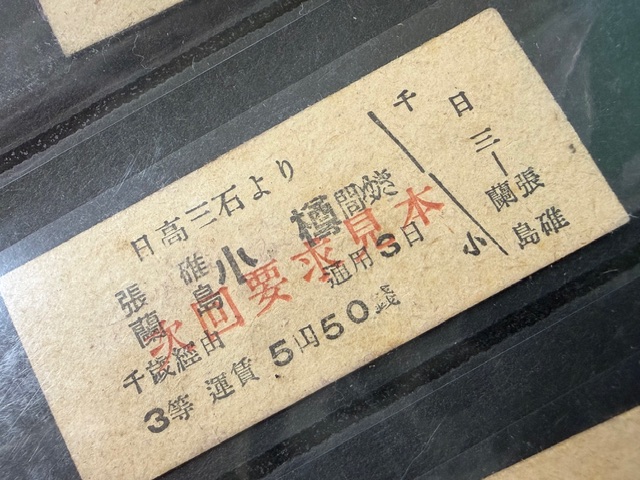 日高三石より
張碓
蘭島
小樽間ゆき
千歳経由
通用3日
3等 運賃 5円50銭
次回要求見本
日三
千
張碓
蘭島
小